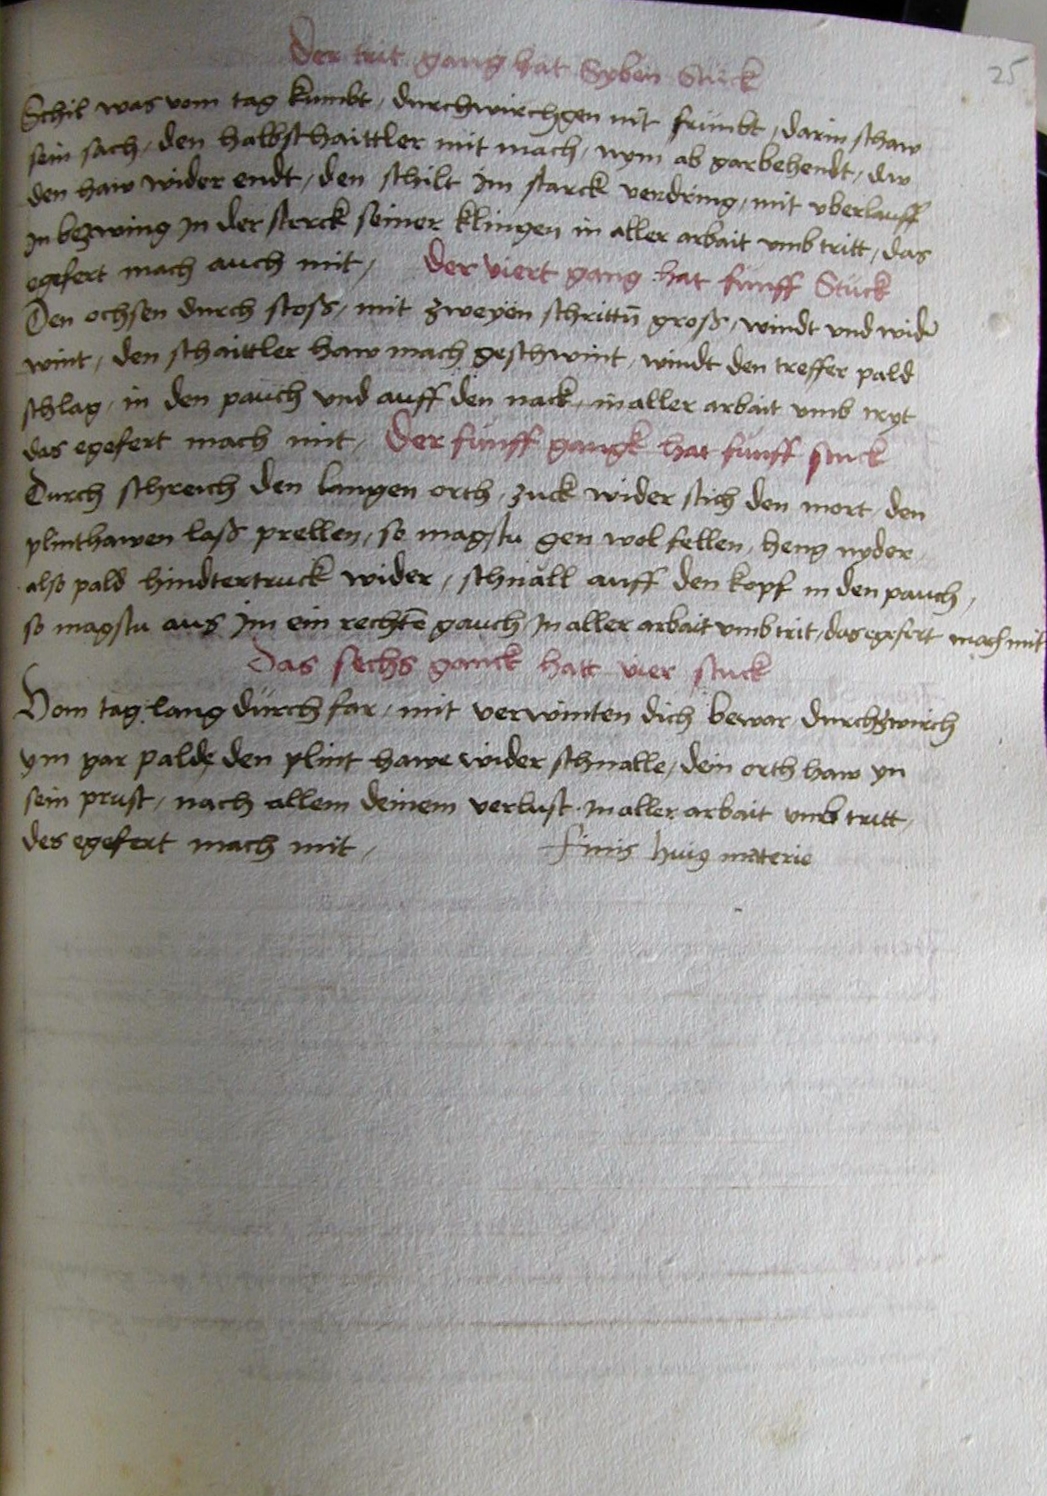 25
Der trit gang hat Syben Stuck
Schil was vom tag kumbt / durchwirchgen nit frümbt / darin schaw
sein sach / den halbschaittler mit mach / nym ab garbehendt / dw
den haw wider endt / den schilt Im starck verdring / mit vberlauff
In bezwing In der sterck seiner klingen in aller arbait vmb tritt / das
egefert mach auch mit / Der viert gang hat funff Stuck
Den ochsen durch stoss / mit zweyen schrittn̄ gross / windt vnd wider
wint / den schaittler haw mach geschwint / windt den treffer pald
schlag / in den pauch vnd auff den nack / in aller arbait vmb tryt
das egefert mach mit / Der funff gangk hat funff stuck
Durch schreich den langen orth / zuck wider stich den mort / den
plinthawen lass prellen / so magstu gen wol fellen / heng nyder /
also pald hindtertruck wider / schnall auff den kopf in den pauch /
so magstu aus Im ein rechtē gauch / In aller arbait vmb trit / das egefert mach mit
Das sechs ganck hatt vier stuck
Vom tag lang durch far / mit verwinten dich bewar durchzwirch
ym gar palde den plint hawe wider schnalle / dein orth haw yn
sein prust / nach allem deinem verlust In aller arbait vmb tritt /
des egefert mach mit / Finis huiꝰ materie